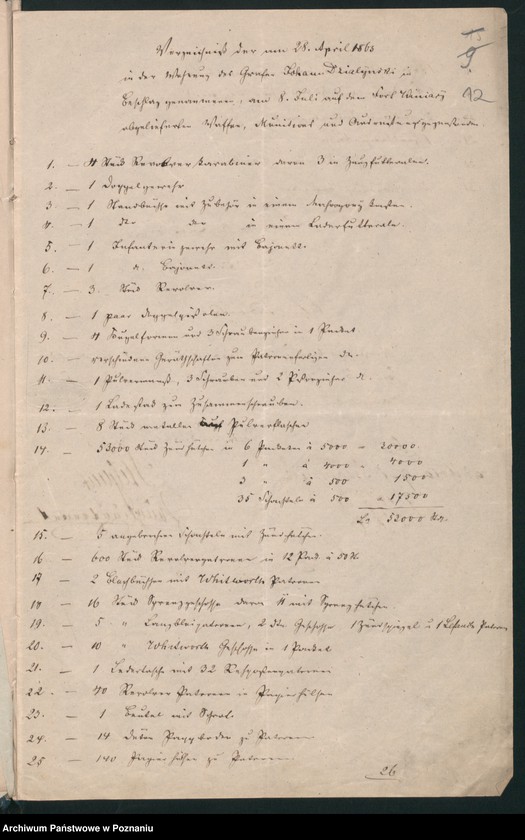 Verzeichniß der am 28. April 1863
in der Wohnung des Grafen Johann Działyński in
Beschlag genommenen, am 8. Juli auf dem Fort Winiary
abgelieferten Waffen, Munitions und Ausrüstungsgegenstände.
9.
92
1. — 4 Stück Revolver Karabiner davon 3 in Zeugfutteralen.
2. — 1 Doppelgewehr
3. — 1 Standbüchse mit Zubehör in einem Mahagony Kasten.
4. — 1 dto dto in einem Lederfutterale.
5. — 1 Infanteriegewehr mit Bajonett.
6. — 1 Bajonett.
7. — 3 Stück Revolver.
8. — 1 paar Doppelpistolen.
9. — 4 Kugelformen und 3 Schraubenzieher in 1 Packet
10. — verschiedene Geräthschaften zum Patronenfertigen
11. — 1 Pulvermaaß, 3 Schrauben und 2
12. — 1 Ladestock zum Zusammenschrauben.
13. — 8 Stück metallne Pulverflaschen
14. — 53000 Stück Zündhütchen in 6 Packeten à 5000 = 30000.
1 " à 4000 = 4000
3 " à 500 1500
35 Schachteln à 500 = 17500
53000
15. — 5 angebrochene Schachteln mit Zündhütchen.
16 — 600 Stück Revolverpatronen in 12 Pack. à 50
17 — 2 Blechbüchsen mit Whitworth Patronen
18 — 16 Stück Sprenggeschosse davon 11 mit Zündhütchen
19. — 5 " Langbleipatronen, 2 dto Geschosse 1 Zündspiegel u 1 Patrone
20. — 10 " Whitworth Geschosse in 1 Packet
21. — 1 Ledertasche mit 32 Patronen
22. — 40 Revolver Patronen in Papierhülsen
23. — 1 Beutel mit Schrot.
24. — 14 Patronen
25 — 140 Papierhülsen zu Patronen.
26
Archiwum Państwowe w Poznaniu